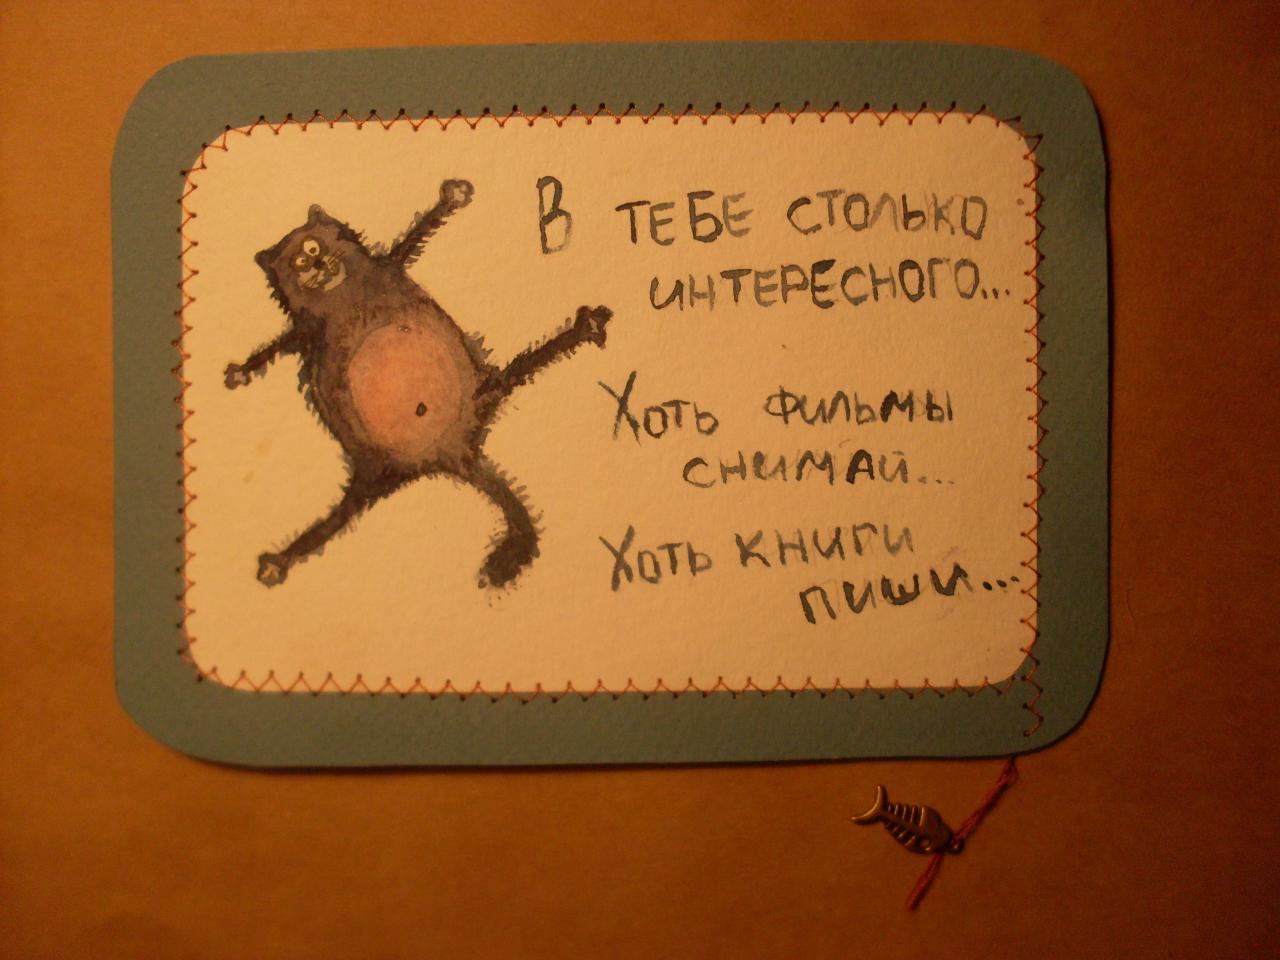 В ТЕБЕ СТОЛЬКО
ИНТЕРЕСНОГО...
ХОТЬ ФИЛЬМЫ
СНИМАЙ...
ХОТЬ КНИГИ
ПИШИ...